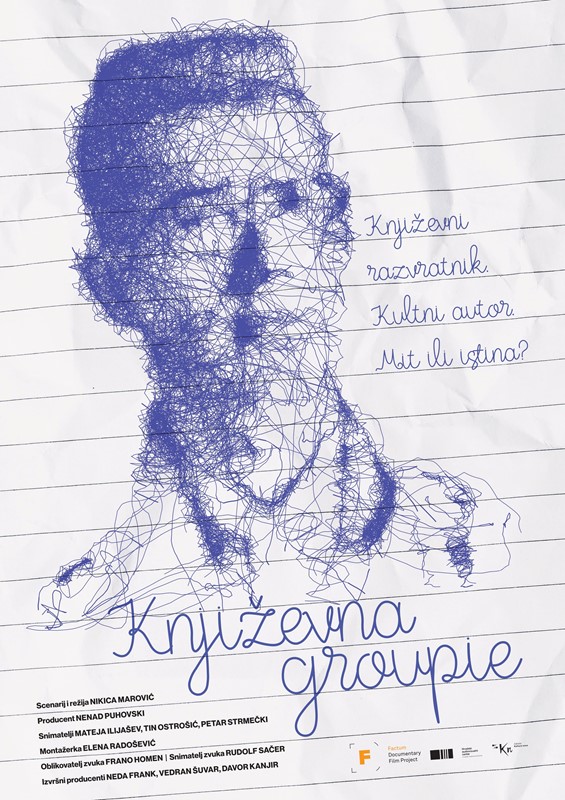 Književni
razvratnik.
Kultni autor.
Mit ili istina?
Književna
groupie
Scenarij i režija NIKICA MAROVIĆ
Producent NENAD PUHOVSKI
Snimatelji MATEJA ILIJAŠEV, TIN OSTROŠIĆ, PETAR STRMEČKI
Montažerka ELENA RADOŠEVIĆ
Oblikovatelj zvuka FRANO HOMEN | Snimatelj zvuka RUDOLF SAČER
Izvršni producenti NEDA FRANK, VEDRAN ŠUVAR, DAVOR KANJIR
F
Factum
Documentary
Film Project